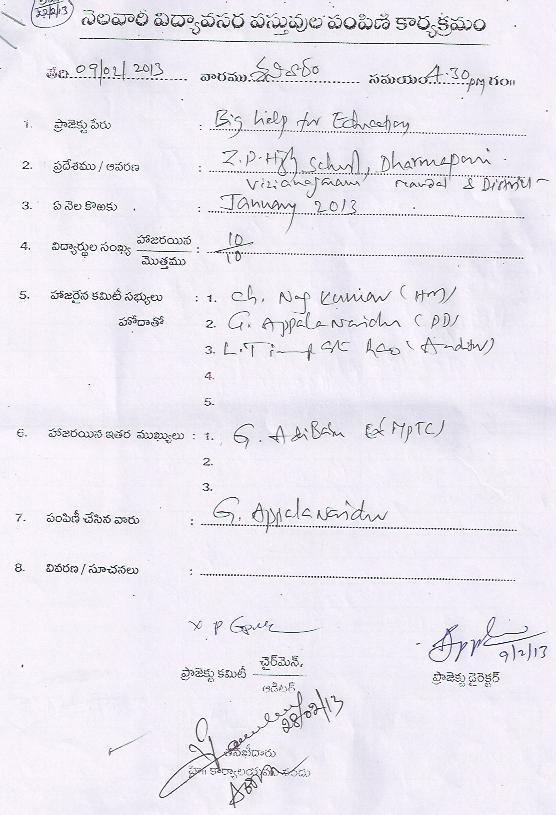 22/2/13
నెలవారీ విద్యావసర వస్తువుల పంపిణి కార్యక్రమం
తేది 09/02/2013 వారము శనివారం సమయం 4.30pm గం॥
1. ప్రాజెక్టు పేరు : Big help for Education
2. ప్రదేశము / ఆవరణ : Z.P. High School, Dharmapuri
Vizianagaram mandal & District
3. ఏ నెల కొఱకు : January 2013
4. విద్యార్థుల సంఖ్య హాజరయిన : 10
మొత్తము 10
5. హాజరైన కమిటీ సభ్యులు : 1. Ch. Nag Kumar (HM)
హోదాతో 2. G. Appala Naidu (PD)
3. L. Rao (Auditor)
4.
5.
6. హాజరయిన ఇతర ముఖ్యులు : 1. G. AdiBabu Ex MPTC)
2.
3.
7. పంపిణీ చేసిన వారు : G. Appala Naidu
8. వివరణ / సూచనలు :
x P
9/2/13
ప్రాజెక్టు కమిటీ చైర్‌మెన్.
ఆడిటర్
ప్రాజెక్టు డైరెక్టర్
28/02/13
తనిఖీదారు